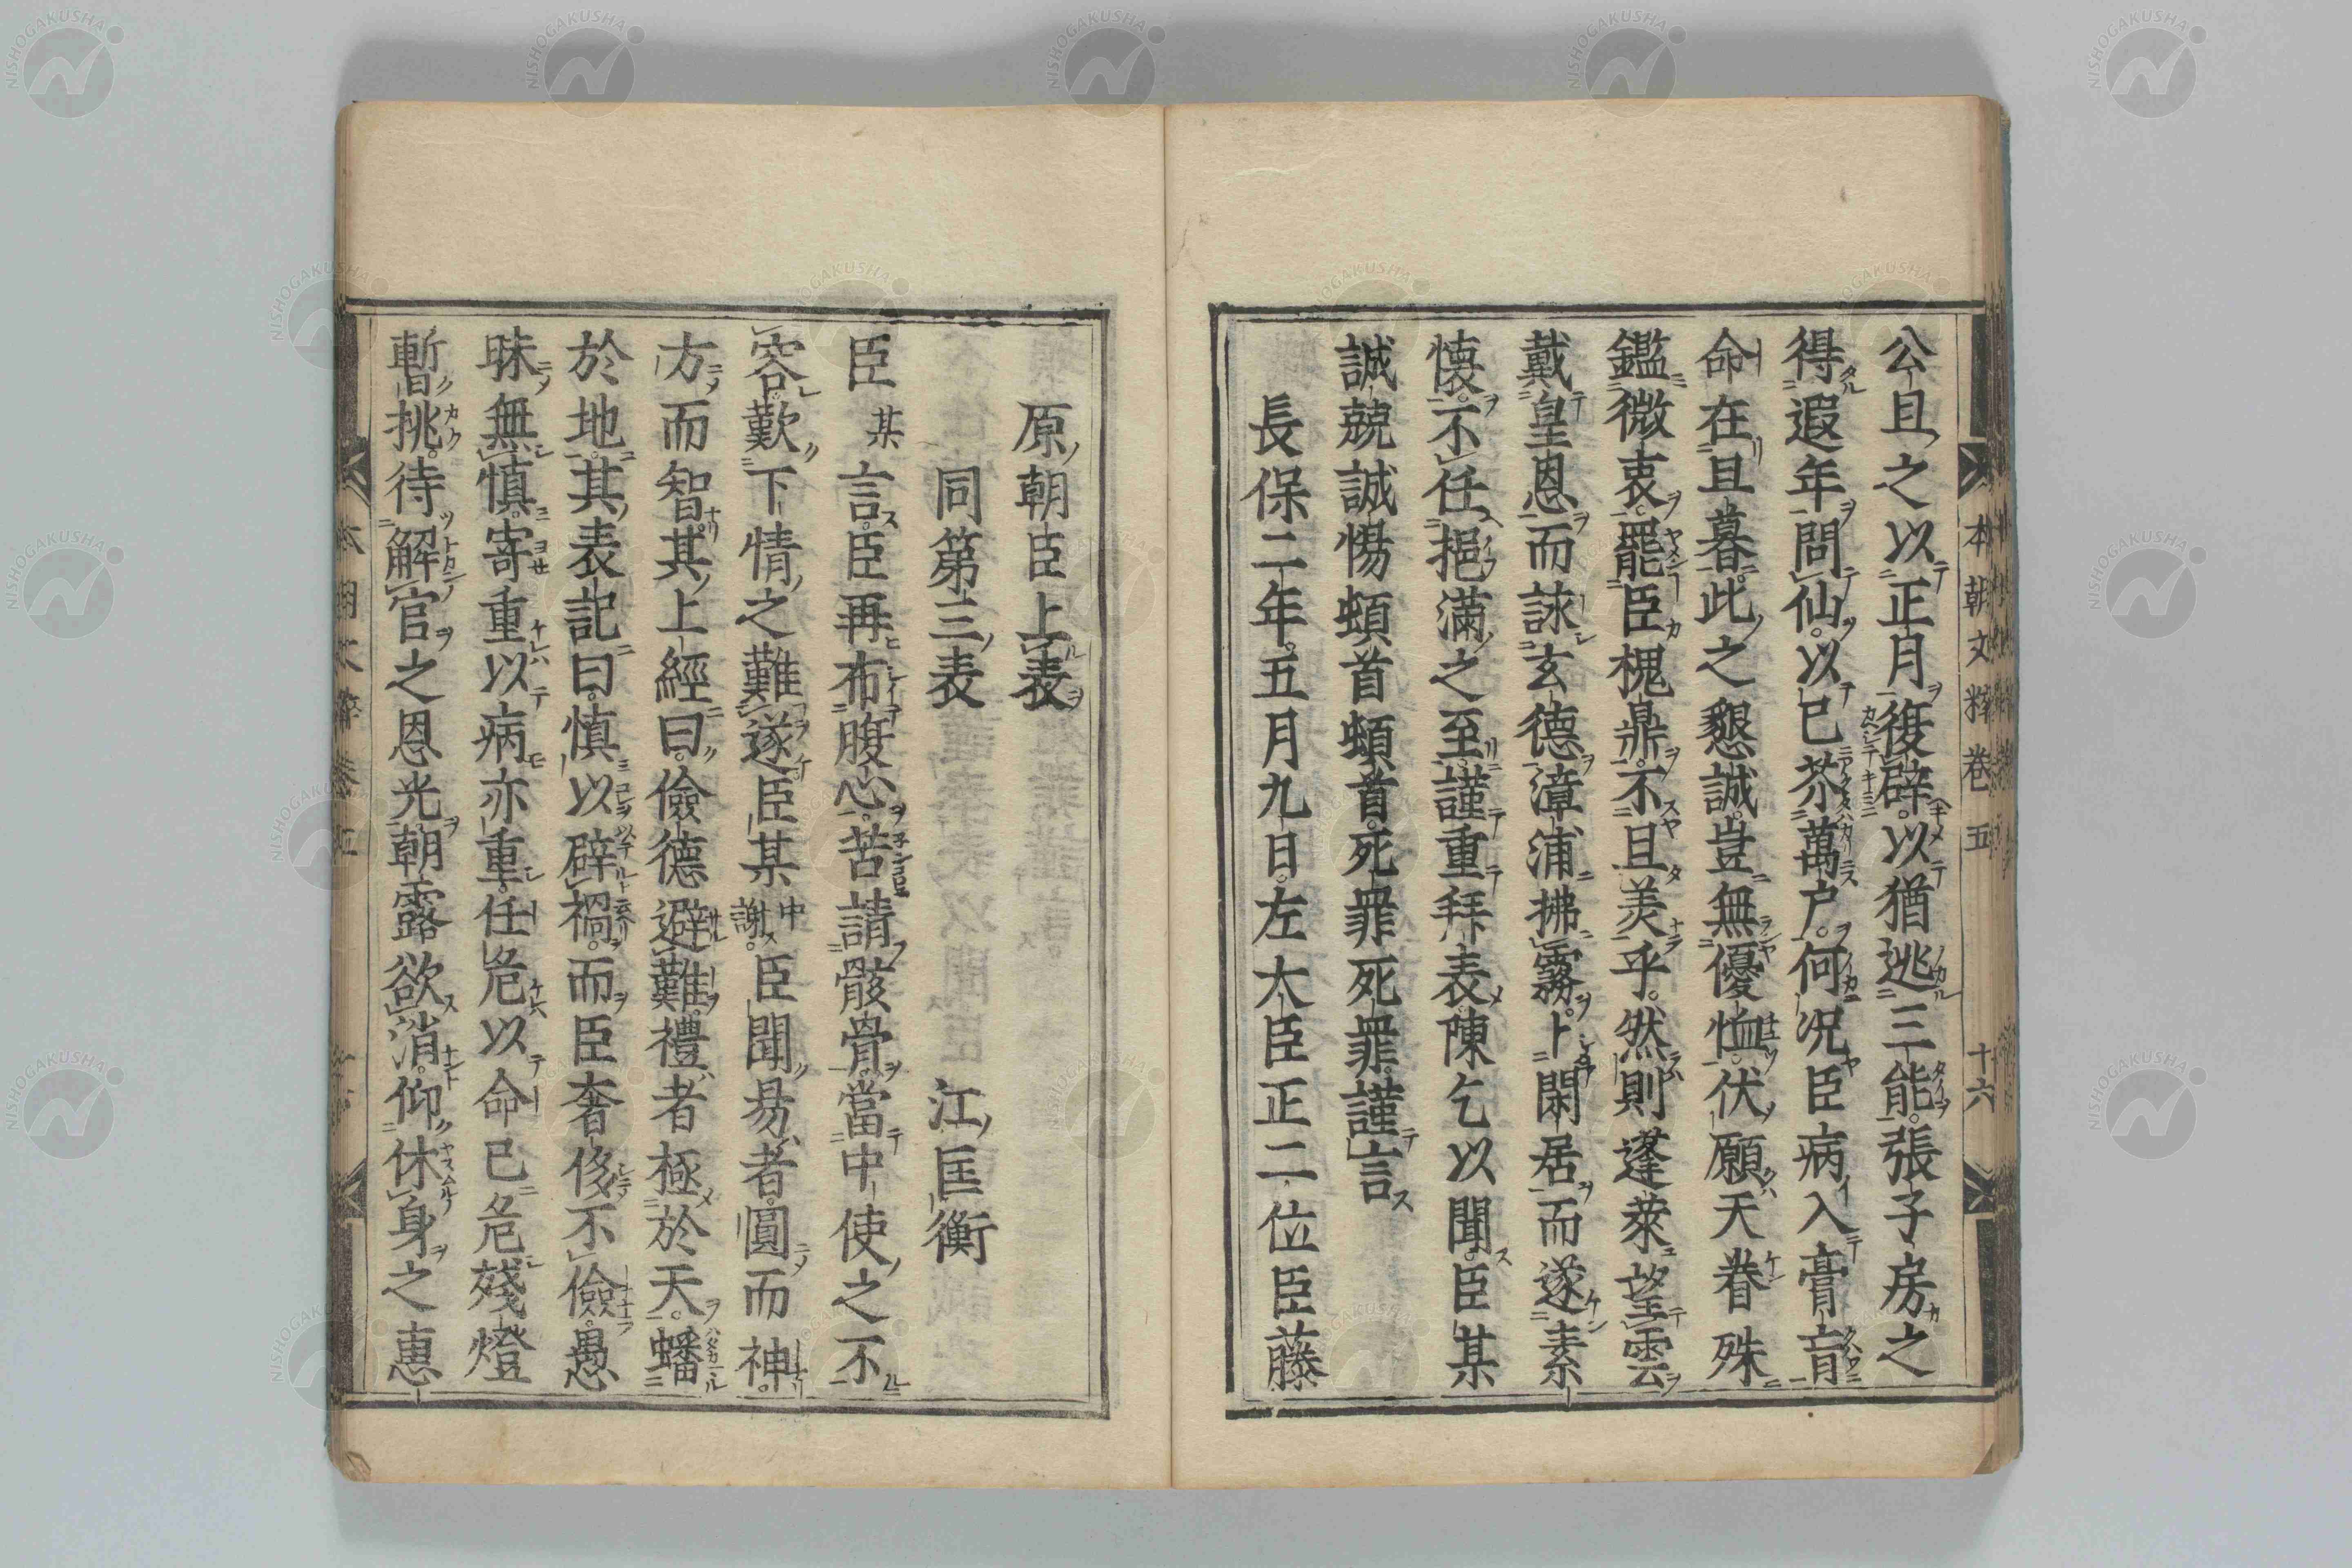 本朝文粹卷五 十六
公且之以正月復辟以猶逃三能張子房之
得遐年問仙以已芥萬户何況臣病入膏肓
命在且暮此之懇誠豈無優恤伏願天眷殊
鑑微衷罷臣槐鼎不且美乎然則蓬萊望雲
戴皇恩而詠玄德漳浦拂霧卜閑居而遂素
懷不任挹滿之至謹重拜表陳乞以聞臣某
誠兢誠惕頓首頓首死罪死罪謹言
長保二年五月九日左大臣正二位臣藤
原朝臣上表
同第三表 江匡衡
臣某言臣再布腹心苦請骸骨當中使之不
容歎下情之難遂臣某中謝臣聞易者圓而神
方而智其上經曰儉德避難禮者極於天蟠
於地其表記曰慎以辟禍而臣奢侈不儉愚
昧無慎寄重以病亦重任危以命已危殘燈
暫挑待解官之恩光朝露欲消仰休身之惠
NISHOGAKUSHA